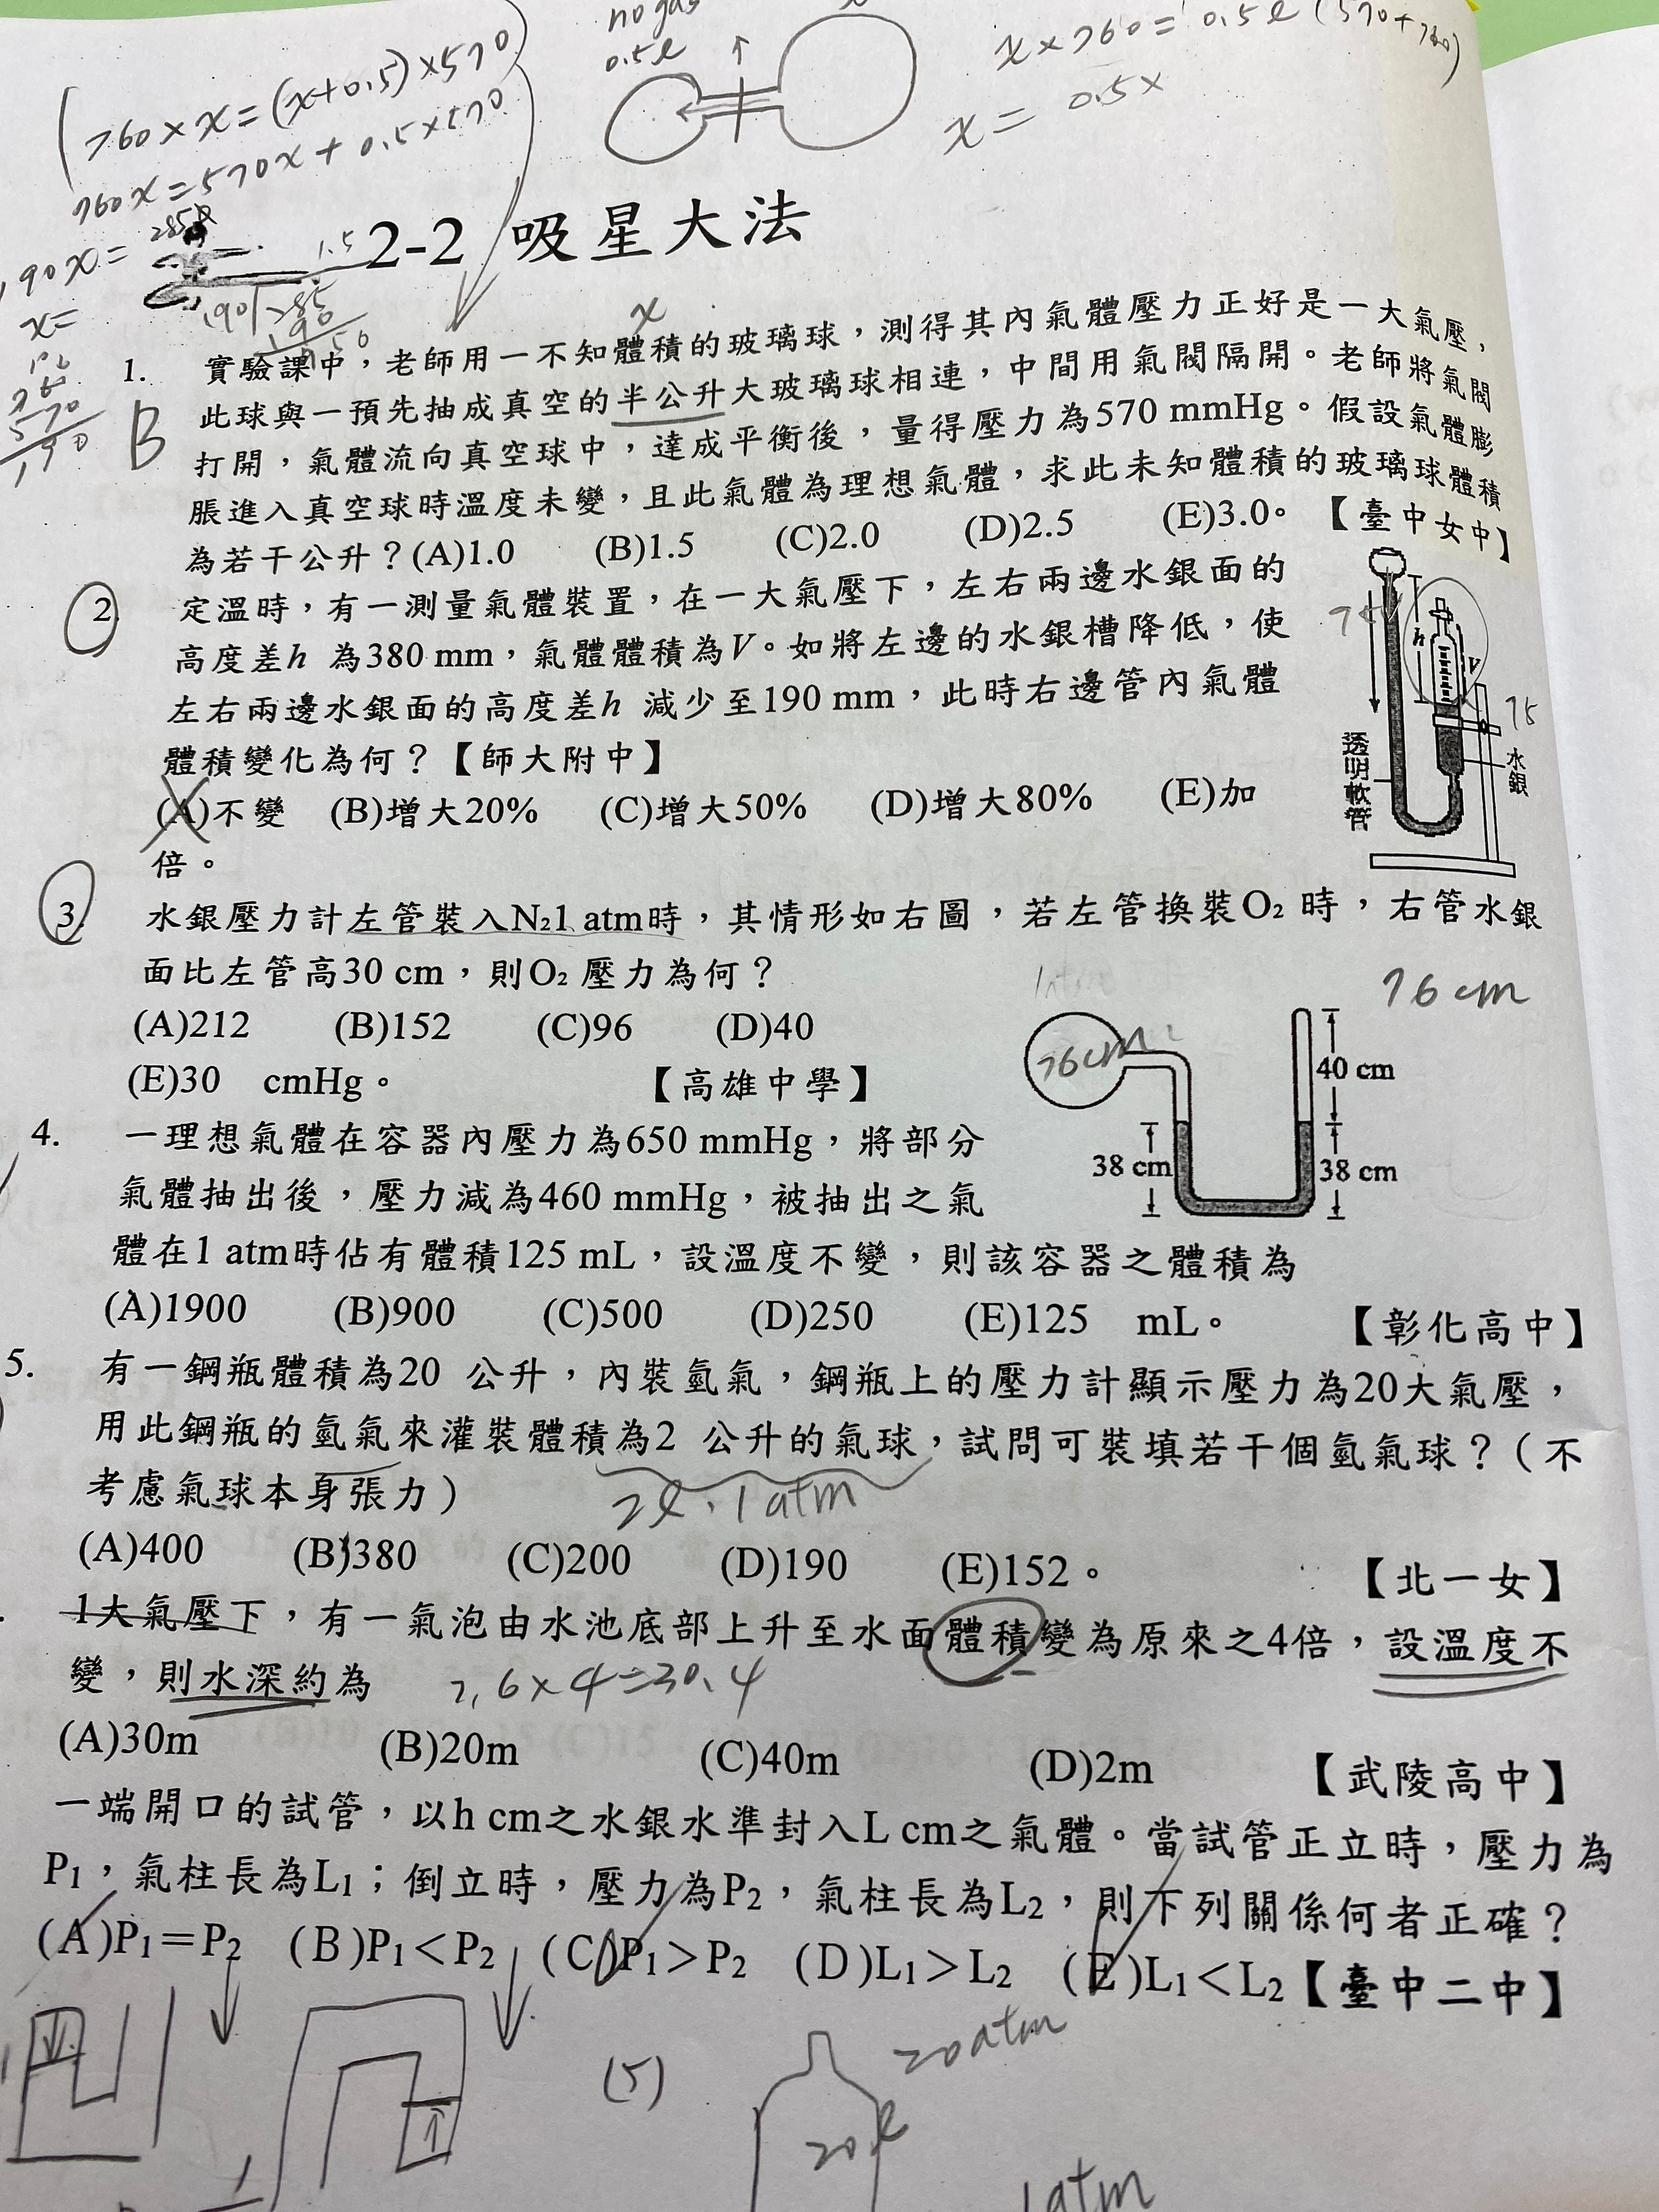 no gas
0.5ℓ
x×760=0.5ℓ(570+760)
x= 0.5×
760×x=(x+0.5)×570
760x=570x+0.5×570
190x=
x=
285
1.5
2-2 吸星大法
x
1. 實驗課中，老師用一不知體積的玻璃球，測得其內氣體壓力正好是一大氣壓，
此球與一預先抽成真空的半公升大玻璃球相連，中間用氣閥隔開。老師將氣閥
B
打開，氣體流向真空球中，達成平衡後，量得壓力為570 mmHg。假設氣體膨
脹進入真空球時溫度未變，且此氣體為理想氣體，求此未知體積的玻璃球體積
為若干公升？(A)1.0 (B)1.5 (C)2.0 (D)2.5 (E)3.0。【臺中女中】
2. 定溫時，有一測量氣體裝置，在一大氣壓下，左右兩邊水銀面的
高度差h 為380 mm，氣體體積為V。如將左邊的水銀槽降低，使
左右兩邊水銀面的高度差h 減少至190 mm，此時右邊管內氣體
體積變化為何？【師大附中】
(A)不變 (B)增大20% (C)增大50% (D)增大80% (E)加
倍。
h
V
透明軟管
水銀
3. 水銀壓力計左管裝入N₂1 atm時，其情形如右圖，若左管換裝O₂ 時，右管水銀
面比左管高30 cm，則O₂ 壓力為何？
(A)212 (B)152 (C)96 (D)40
(E)30 cmHg。 【高雄中學】
76 cm
76cm
40 cm
38 cm
38 cm
4. 一理想氣體在容器內壓力為650 mmHg，將部分
氣體抽出後，壓力減為460 mmHg，被抽出之氣
體在1 atm時佔有體積125 mL，設溫度不變，則該容器之體積為
(A)1900 (B)900 (C)500 (D)250 (E)125 mL。 【彰化高中】
5. 有一鋼瓶體積為20 公升，內裝氫氣，鋼瓶上的壓力計顯示壓力為20大氣壓，
用此鋼瓶的氫氣來灌裝體積為2 公升的氣球，試問可裝填若干個氫氣球？（不
考慮氣球本身張力）
2ℓ.1atm
(A)400 (B)380 (C)200 (D)190 (E)152。 【北一女】
1大氣壓下，有一氣泡由水池底部上升至水面體積變為原來之4倍，設溫度不
變，則水深約為
7.6×4=30.4
(A)30m (B)20m (C)40m (D)2m 【武陵高中】
一端開口的試管，以h cm之水銀水準封入L cm之氣體。當試管正立時，壓力為
P₁，氣柱長為L₁；倒立時，壓力為P₂，氣柱長為L₂，則下列關係何者正確？
(A)P₁=P₂ (B)P₁<P₂ (C)P₁>P₂ (D)L₁>L₂ (E)L₁<L₂【臺中二中】
(5)
20atm
20ℓ
1atm